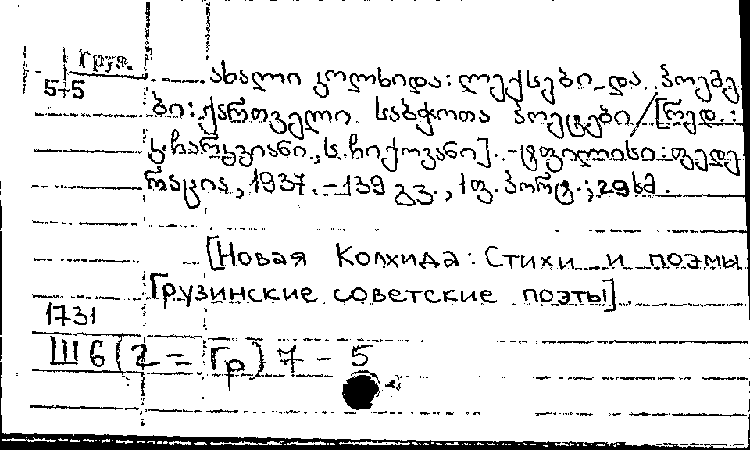 Груз.
5+5
ახალი კოლხიდა: ლექსები და პოემე
ბი: ქართველი საბჭოთა პოეტები / [რედ.:
ს. ჩიქოვანი]. - ტფილისი: ფედე
რაცია, 1937. - 139 გვ., 1 ფ. პორტ.; 29სმ.
[Новая Колхида: Стихи и поэмы
Грузинские советские поэты]
1731
Ш 6 (2 = Гр) 7 - 5